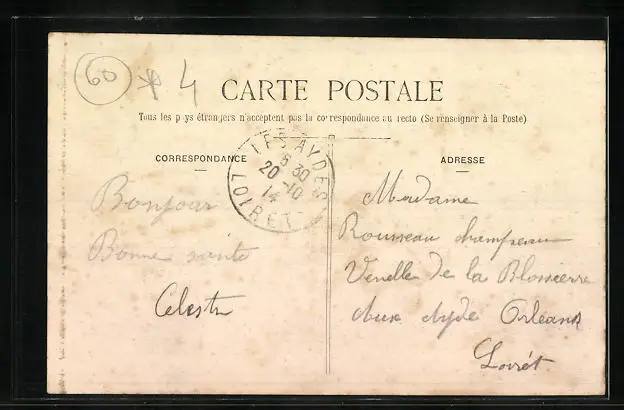 60 * 4
CARTE POSTALE
Tous les pays étrangers n'acceptent pas la correspondance au recto (Se renseigner à la Poste)
CORRESPONDANCE
ADRESSE
LES AYDES
6 30
20 -10
14
LOIRET
Bonjour
Bonne santé
Celestin
Madame
Rousseau champeau
Venelle de la
Aux Ayde Orleans
Loirét